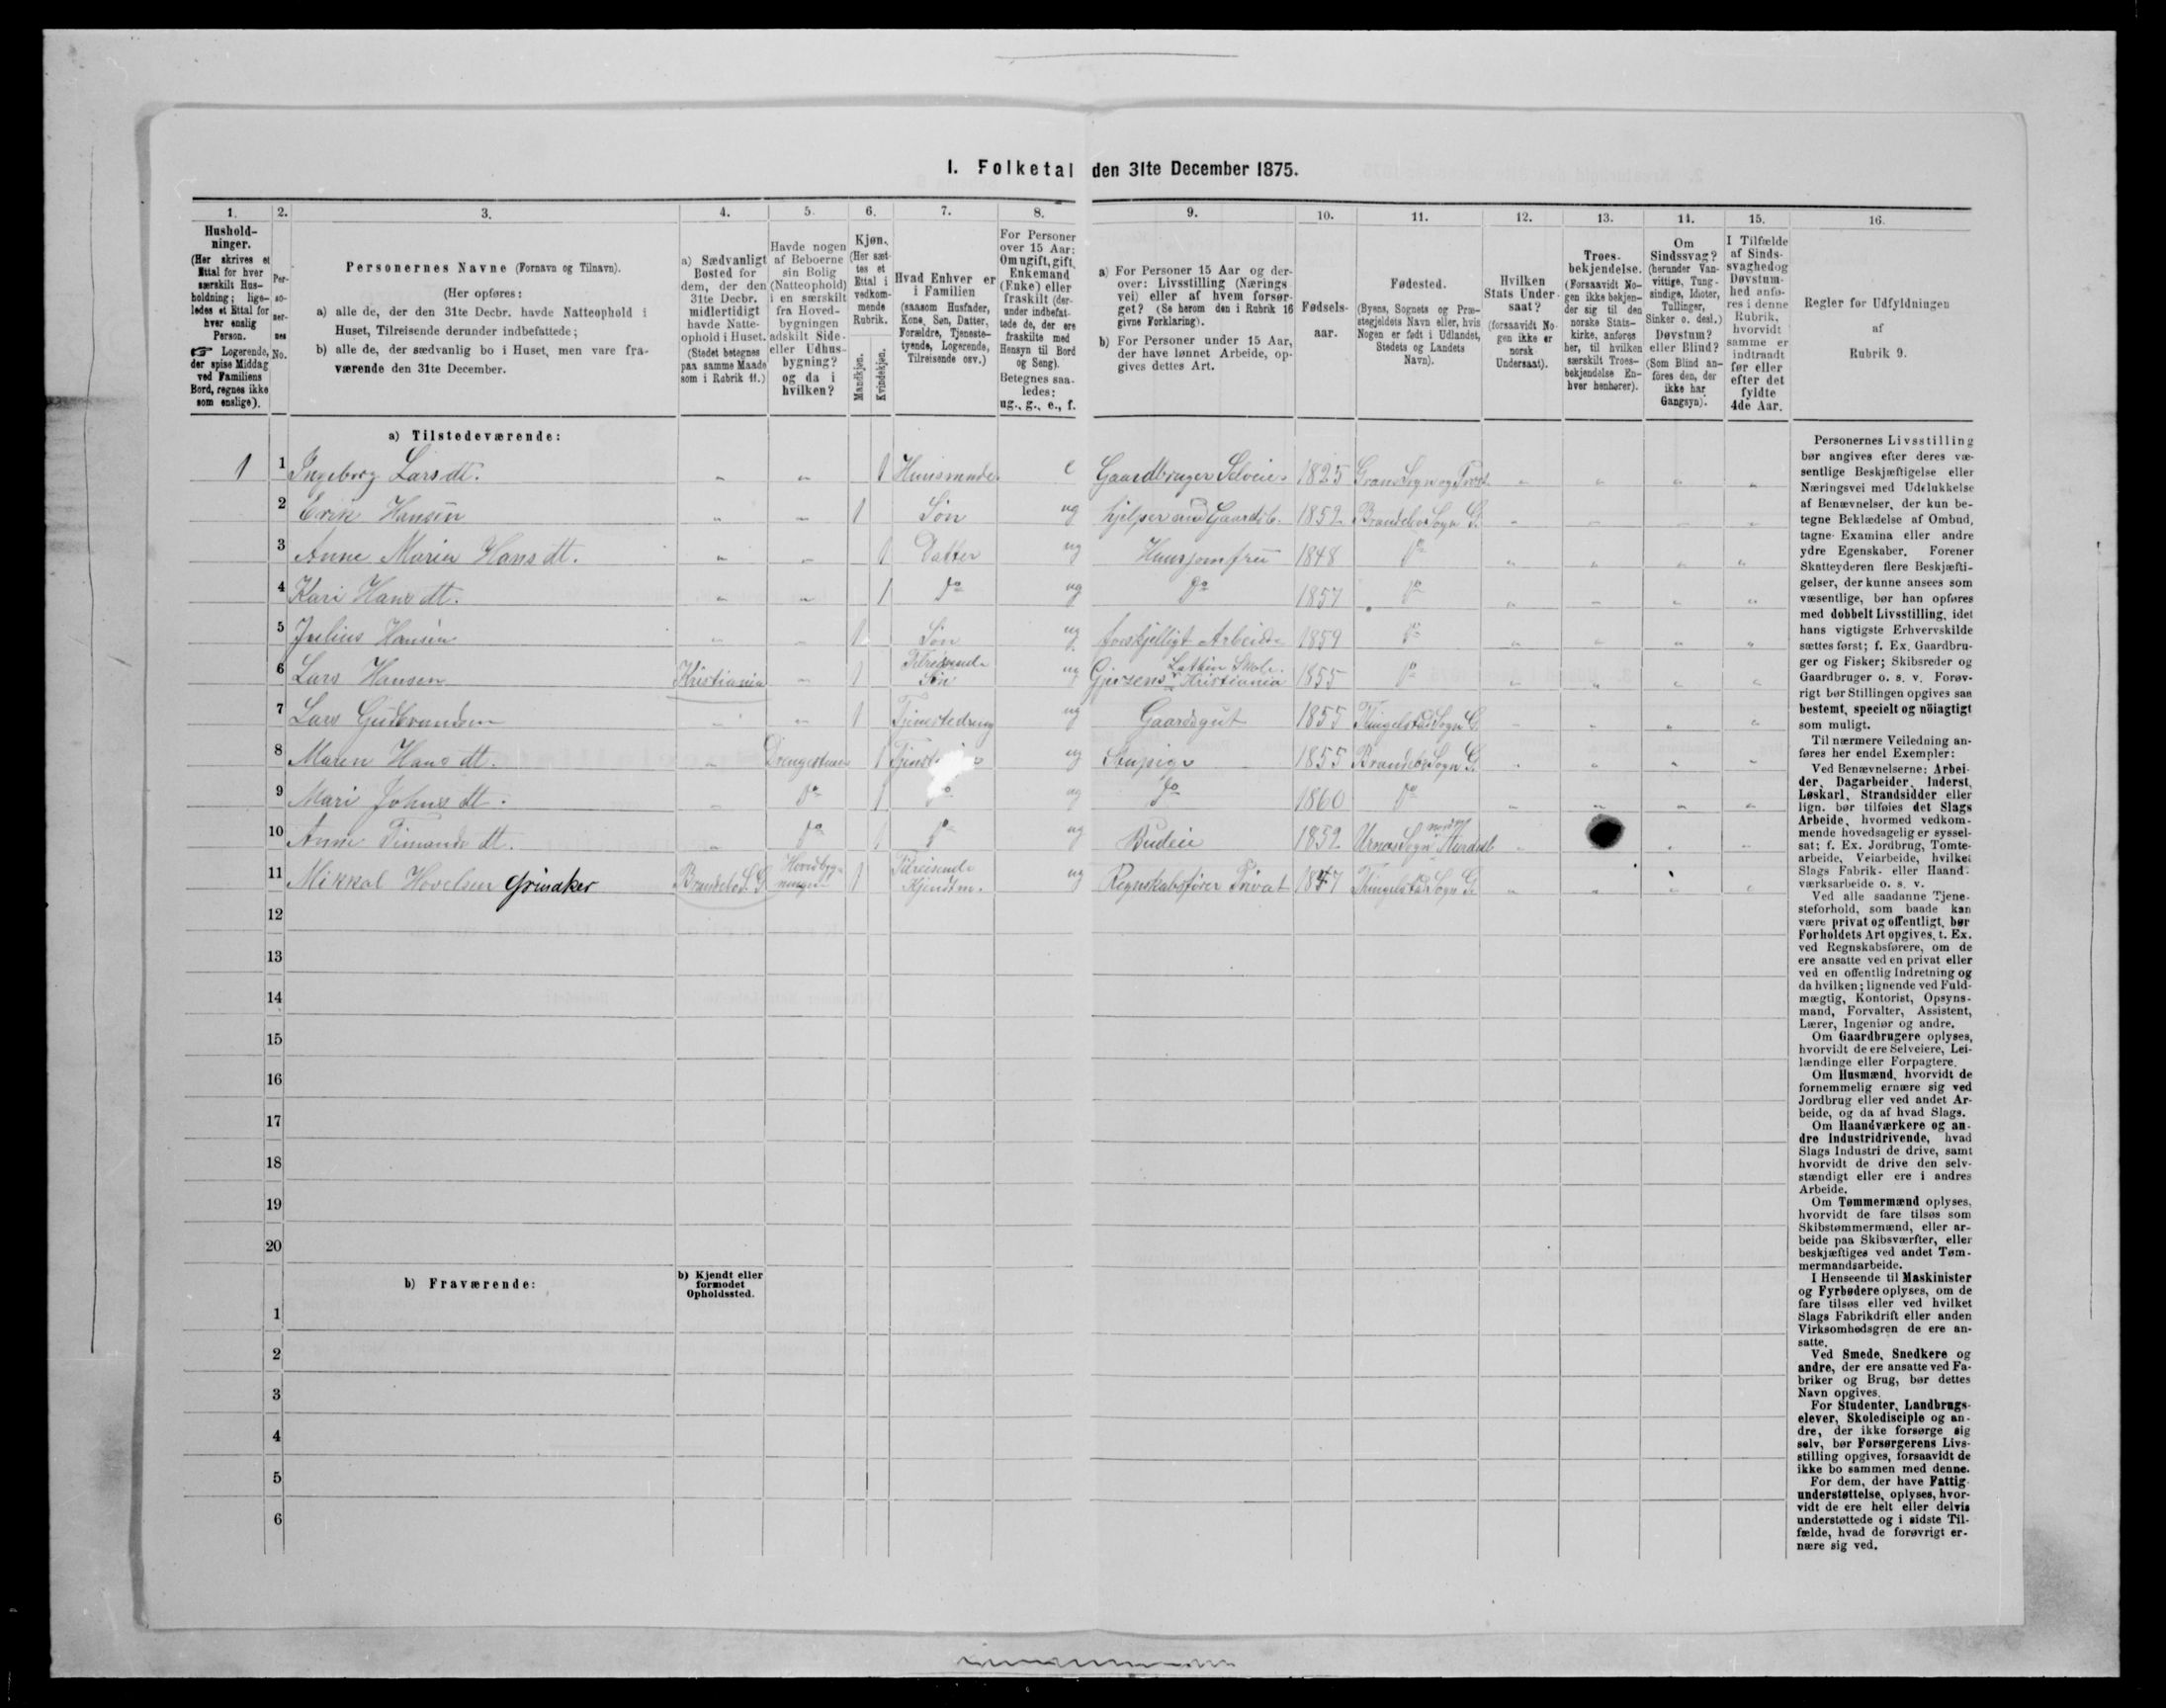 I. Folketal den 31te December 1875.
1.
Hushold-
ninger.
(Her skrives et
Ettal for hver
særskilt Hus-
holdning; lige-
ledes et Ettal for
hver enslig
Person.
☞ Logerende,
der spise Middag
ved Familiens
Bord, regnes ikke
som enslige).
2.
Per-
so-
ner-
nes
No.
3.
Personernes Navne (Fornavn og Tilnavn).
(Her opføres:
a) alle de, der den 31te Decbr. havde Natteophold i
Huset, Tilreisende derunder indbefattede;
b) alle de, der sædvanlig bo i Huset, men vare fra-
værende den 31te December.
4.
a) Sædvanligt
Bosted for
dem, der den
31te Decbr.
midlertidigt
havde Natte-
ophold i Huset.
(Stedet betegnes
paa samme Maade
som i Rubrik 11.)
5.
Havde nogen
af Beboerne
sin Bolig
(Natteophold)
i en særskilt
fra Hoved-
bygningen
adskilt Side-
eller Udhus-
bygning?
og da i
hvilken?
6.
Kjøn.
(Her sæt-
tes et
Ettal i
vedkom-
mende
Rubrik.
Mandkjøn.
Kvindekjøn.
7.
Hvad Enhver er
i Familien
(saasom Husfader,
Kone, Søn, Datter,
Forældre, Tjeneste-
tyende, Logerende,
Tilreisende osv.)
8.
For Personer
over 15 Aar:
Om ugift, gift,
Enkemand
(Enke) eller
fraskilt (der-
under indbefat-
tede de, der ere
fraskilte med
Hensyn til Bord
og Seng).
Betegnes saa-
ledes:
ug., g., e., f.
9.
a) For Personer 15 Aar og der-
over: Livsstilling (Nærings
vei) eller af hvem forsør-
get? (Se herom den i Rubrik 16
givne Forklaring).
b) For Personer under 15 Aar,
der have lønnet Arbeide, op-
gives dettes Art.
10.
Fødsels-
aar.
11.
Fødested.
(Byens, Sognets og Præ-
stegjeldets Navn eller, hvis
Nogen er født i Udlandet,
Stedets og Landets
Navn).
12.
Hvilken
Stats Under-
saat?
(forsaavidt No-
gen ikke er
norsk
Undersaat).
13.
Troes-
bekjendelse.
(Forsaavidt No-
gen ikke bekjen-
der sig til den
norske Stats-
kirke, anføres
her, til hvilken
særskilt Troes-
bekjendelse En-
hver henhører).
14.
Om
Sindssvag?
(herunder Van-
vittige, Tung-
sindige, Idioter,
Tullinger,
Sinker o. desl.)
Døvstum?
eller Blind?
(Som Blind an-
føres den, der
ikke har
Gangsyn).
15.
I Tilfælde
af Sinds-
svaghedog
Døvstum-
hed anfø-
res i denne
Rubrik,
hvorvidt
samme er
indtraadt
før eller
efter det
fyldte
4de Aar.
16.
Regler for Udfyldningen
af
Rubrik 9.
a) Tilstedeværende:
1 1 Ingeborg Larsdt. „ „ 1 e Gaardbruger Selveie 1825 „ „ „ „
2 Erik Hansen „ „ 1 Søn ug hjelper med 1852 Brandebo Sogn G. „ „ „ „
3 Anne Maria Hansdt. „ „ 1 Datter ug Huusjomfru 1848 do „ „ „ „
4 Kari Hansdt. „ „ 1 do ug do 1857 do „ „ „ „
5 Julius Hansen „ „ 1 Søn ug forskjelligt Arbeide 1859 do „ „ „ „
6 Lars Hansen Kristiania „ 1 Tilreisende Søn ug Latin Skole Kristiania 1855 do „ „ „ „
7 Lars Gudbrandsen „ „ 1 Tjenestedreng ug Gaardsgut 1855 Tingelstad Sogn G. „ „ „ „
8 Maren Hansdt. „ Drengestuen 1 ug 1855 Brandebo Sogn G. „ „ „ „
9 Mari Johnsdt. „ do 1 do ug do 1860 do „ „ „ „
10 Anne dt. „ do 1 do ug Budeie 1852 Sogn „ „ „
11 Mikkal Hovelsen Grinaker Brandebo S. G. Hovedbyg- ningen 1 Tilreisende ug Regnskabsfører Privat 1847 Tingelstad Sogn G. „ „ „ „
12
13
14
15
16
17
18
19
20
b) Fraværende:
b) Kjendt eller
formodet
Opholdssted.
1
2
3
4
5
6
Personernes Livsstilling
bør angives efter deres væ-
sentlige Beskjæftigelse eller
Næringsvei med Udelukkelse
af Benævnelser, der kun be-
tegne Beklædelse af Ombud,
tagne Examina eller andre
ydre Egenskaber. Forener
Skatteyderen flere Beskjæfti-
gelser, der kunne ansees som
væsentlige, bør han opføres
med dobbelt Livsstilling, idet
hans vigtigste Erhvervskilde
sættes først; f. Ex. Gaardbru-
ger og Fisker; Skibsreder og
Gaardbruger o. s. v. Forøv-
rigt bør Stillingen opgives saa
bestemt, specielt og nöiagtigt
som muligt.
Til nærmere Veiledning an-
føres her endel Exempler:
Ved Benævnelserne: Arbei-
der, Dagarbeider, Inderst,
Løskarl, Strandsidder eller
lign. bør tilføies det Slags
Arbeide, hvormed vedkom-
mende hovedsagelig er syssel-
sat; f. Ex. Jordbrug, Tomte-
arbeide, Veiarbeide, hvilket
Slags Fabrik- eller Haand-
værksarbeide o. s. v.
Ved alle saadanne Tjene-
steforhold, som baade kan
være privat og offentligt, bør
Forholdets Art opgives, t. Ex.
ved Regnskabsførere, om de
ere ansatte ved en privat eller
ved en offentlig Indretning og
da hvilken; lignende ved Fuld-
mægtig, Kontorist, Opsyns-
mand, Forvalter, Assistent,
Lærer, Ingeniør og andre.
Om Gaardbrugere oplyses,
hvorvidt de ere Selveiere, Lei-
lændinge eller Forpagtere.
Om Husmænd, hvorvidt de
fornemmelig ernære sig ved
Jordbrug eller ved andet Ar-
beide, og da af hvad Slags.
Om Haandværkere og an-
dre Industridrivende, hvad
Slags Industri de drive, samt
hvorvidt de drive den selv-
stændigt eller ere i andres
Arbeide.
Om Tømmermænd oplyses,
hvorvidt de fare tilsøs som
Skibstømmermænd, eller ar-
beide paa Skibsværfter, eller
beskjæftiges ved andet Tøm-
mermandsarbeide.
I Henseende til Maskinister
og Fyrbødere oplyses, om de
fare tilsøs eller ved hvilket
Slags Fabrikdrift eller anden
Virksomhedsgren de ere an-
satte.
Ved Smede, Snedkere og
andre, der ere ansatte ved Fa-
briker og Brug, bør dettes
Navn opgives.
For Studenter, Landbrugs-
elever, Skoledisciple og an-
dre, der ikke forsørge sig
selv, bør Forsørgerens Livs-
stilling opgives, forsaavidt de
ikke bo sammen med denne.
For dem, der have Fattig-
understøttelse, oplyses, hvor-
vidt de ere helt eller delvis
understøttede og i sidste Til-
fælde, hvad de forøvrigt er-
nære sig ved.